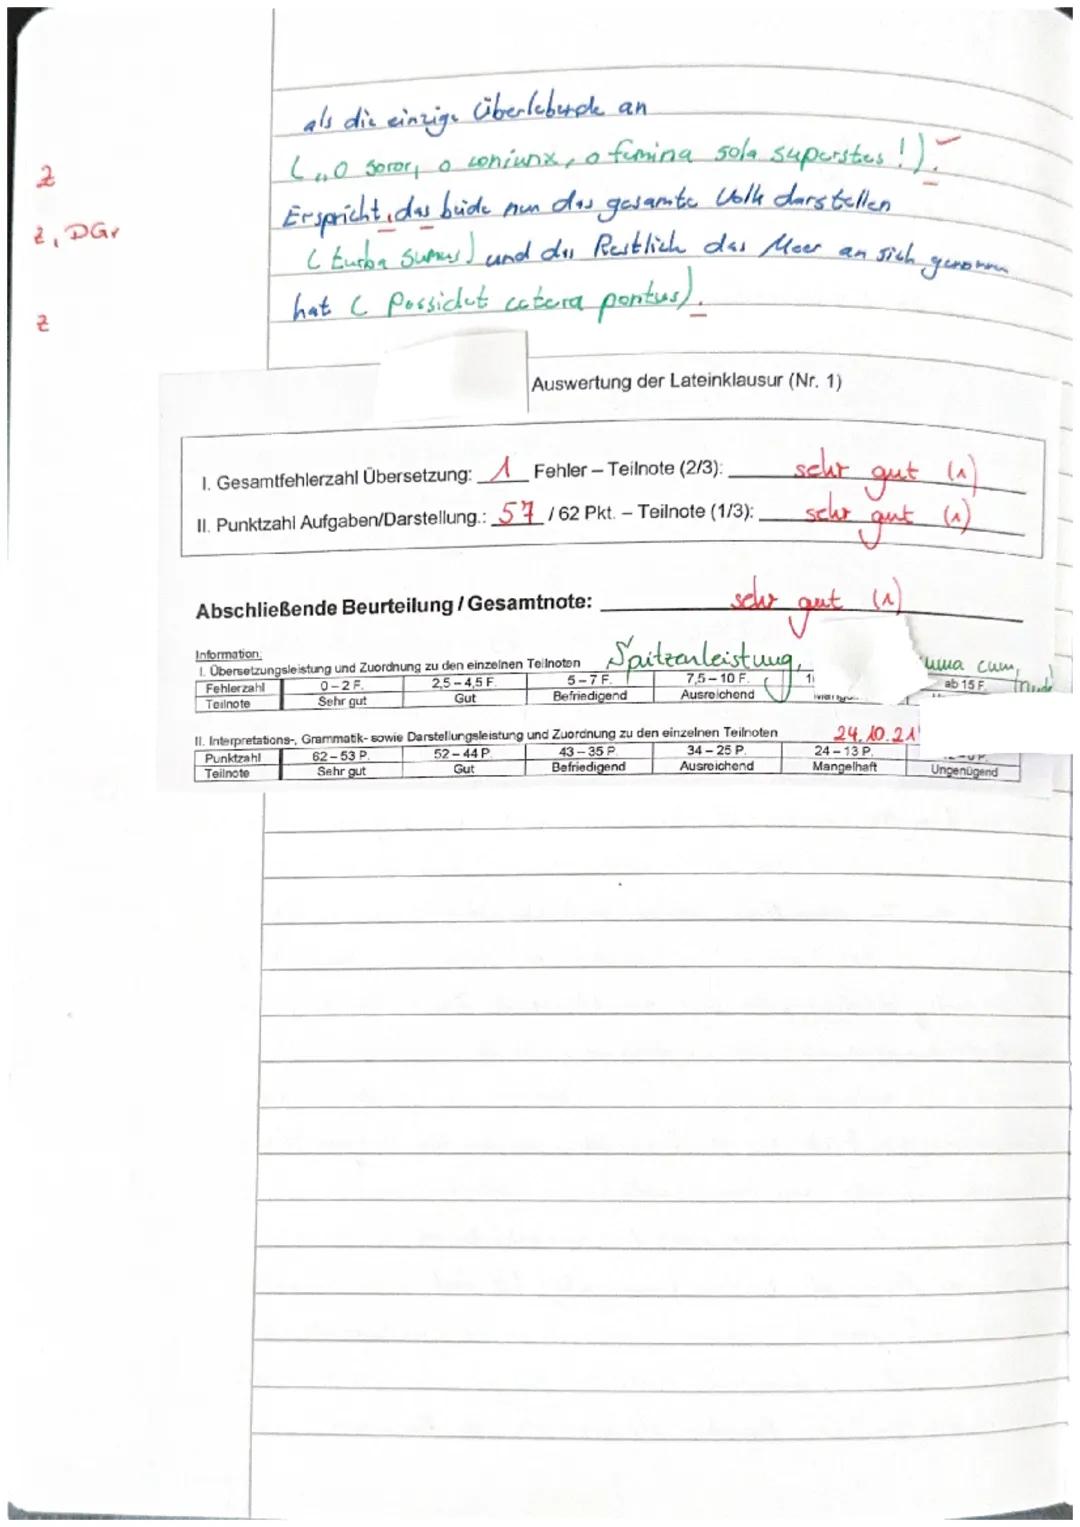 als die einzige Überlebende an
(„O soror, o coniunx, o femina sola superstes!).
z
Erspricht, das beide nun das gesamte Volk darstellen
z, DGr
(turba sumus) und das Restlich das Meer an sich genommen
hat (Possidet cetera pontus).
z
Auswertung der Lateinklausur (Nr. 1)
I. Gesamtfehlerzahl Übersetzung: 1 Fehler – Teilnote (2/3): sehr gut (1)
II. Punktzahl Aufgaben/Darstellung.: 57 / 62 Pkt. – Teilnote (1/3): sehr gut (1)
Abschließende Beurteilung / Gesamtnote: sehr gut (1)
Information:
Spitzenleistung, cum
I. Übersetzungsleistung und Zuordnung zu den einzelnen Teilnoten
Fehlerzahl 0 – 2 F. 2,5 – 4,5 F. 5 – 7 F. 7,5 – 10 F. ab 15 F.
Teilnote Sehr gut Gut Befriedigend Ausreichend
24.10.21
II. Interpretations-, Grammatik- sowie Darstellungsleistung und Zuordnung zu den einzelnen Teilnoten
Punktzahl 62 – 53 P. 52 – 44 P. 43 – 35 P. 34 – 25 P. 24 – 13 P.
Teilnote Sehr gut Gut Befriedigend Ausreichend Mangelhaft Ungenügend